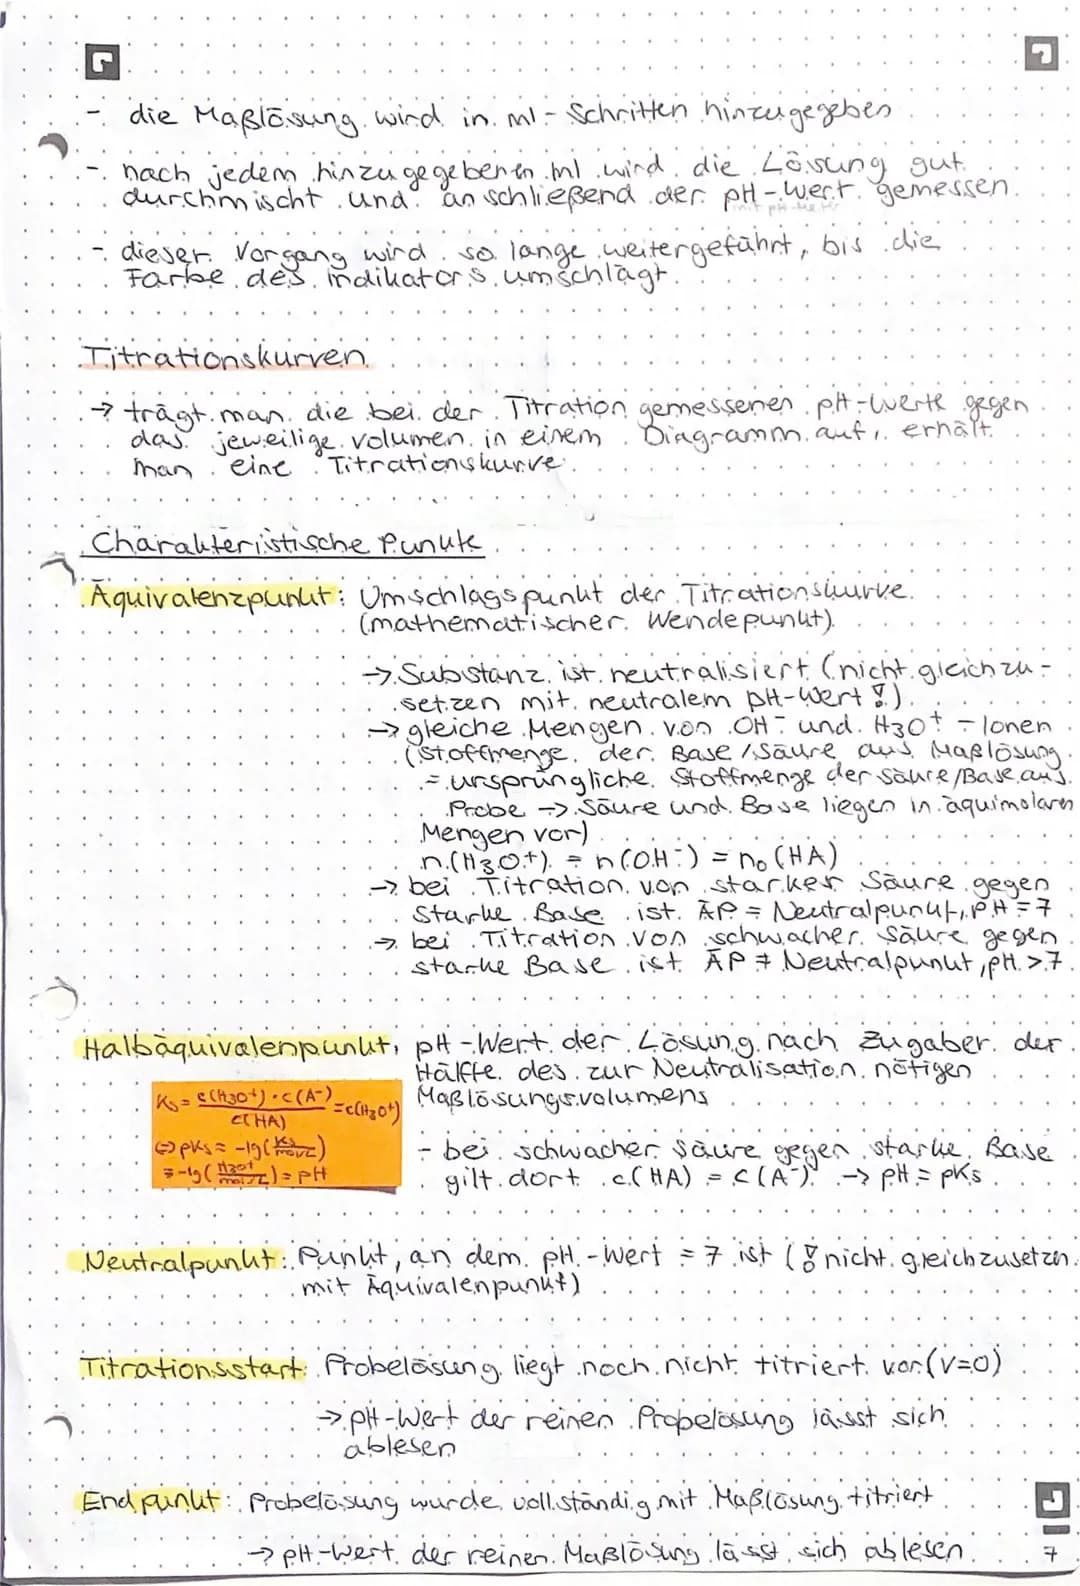 - die Maßlösung wird in ml-Schritten hinzugegeben
- nach jedem hinzugegebenen ml wird die Lösung gut
durchmischt und anschließend der pH-Wert gemessen
mit pH-Meter
- dieser Vorgang wird so lange weitergeführt, bis die
Farbe des indikators umschlägt.
Titrationskurven
→ trägt man die bei der Titration gemessenen pH-Werte gegen
das jeweilige volumen in einem Diagramm auf, erhält
man eine Titrationskurve
Charakteristische Punkte
Äquivalenzpunkt: Umschlagspunkt der Titrationskurve
(mathematischer Wendepunkt)
→ Substanz ist neutralisiert (nicht gleichzu-
setzen mit neutralem pH-Wert!)
→ gleiche Mengen von OH⁻ und H3O⁺-Ionen
(Stoffmenge der Base/Säure aus Maßlösung
= ursprüngliche Stoffmenge der Säure/Base aus
Probe → Säure und Base liegen in äquimolaren
Mengen vor)
n(H3O⁺) = n(OH⁻) = n₀(HA)
→ bei Titration von starker Säure gegen
starke Base ist ÄP = Neutralpunkt, pH=7
→ bei Titration von schwacher Säure gegen
starke Base ist ÄP ≠ Neutralpunkt, pH >7
Halbäquivalenpunkt: pH-Wert der Lösung nach Zugaber der
Hälfte des zur Neutralisation nötigen
Maßlösungsvolumens
Ks = c(H3O⁺)·c(A⁻)/c(HA) = c(H3O⁺)
⇔ pKs = -lg(Ks/mol/L)
= -lg(H3O⁺/mol/L) = pH
- bei schwacher Säure gegen starke Base
gilt dort c(HA) = c(A⁻) → pH = pKs
Neutralpunkt: Punkt, an dem pH-Wert = 7 ist (! nicht gleichzusetzen
mit Äquivalenpunkt)
Titrationsstart: Probelösung liegt noch nicht titriert vor (V=0)
→ pH-Wert der reinen Probelösung lässt sich
ablesen
Endpunkt: Probelösung wurde vollständig mit Maßlösung titriert
→ pH-Wert der reinen Maßlösung lässt sich ablesen
7